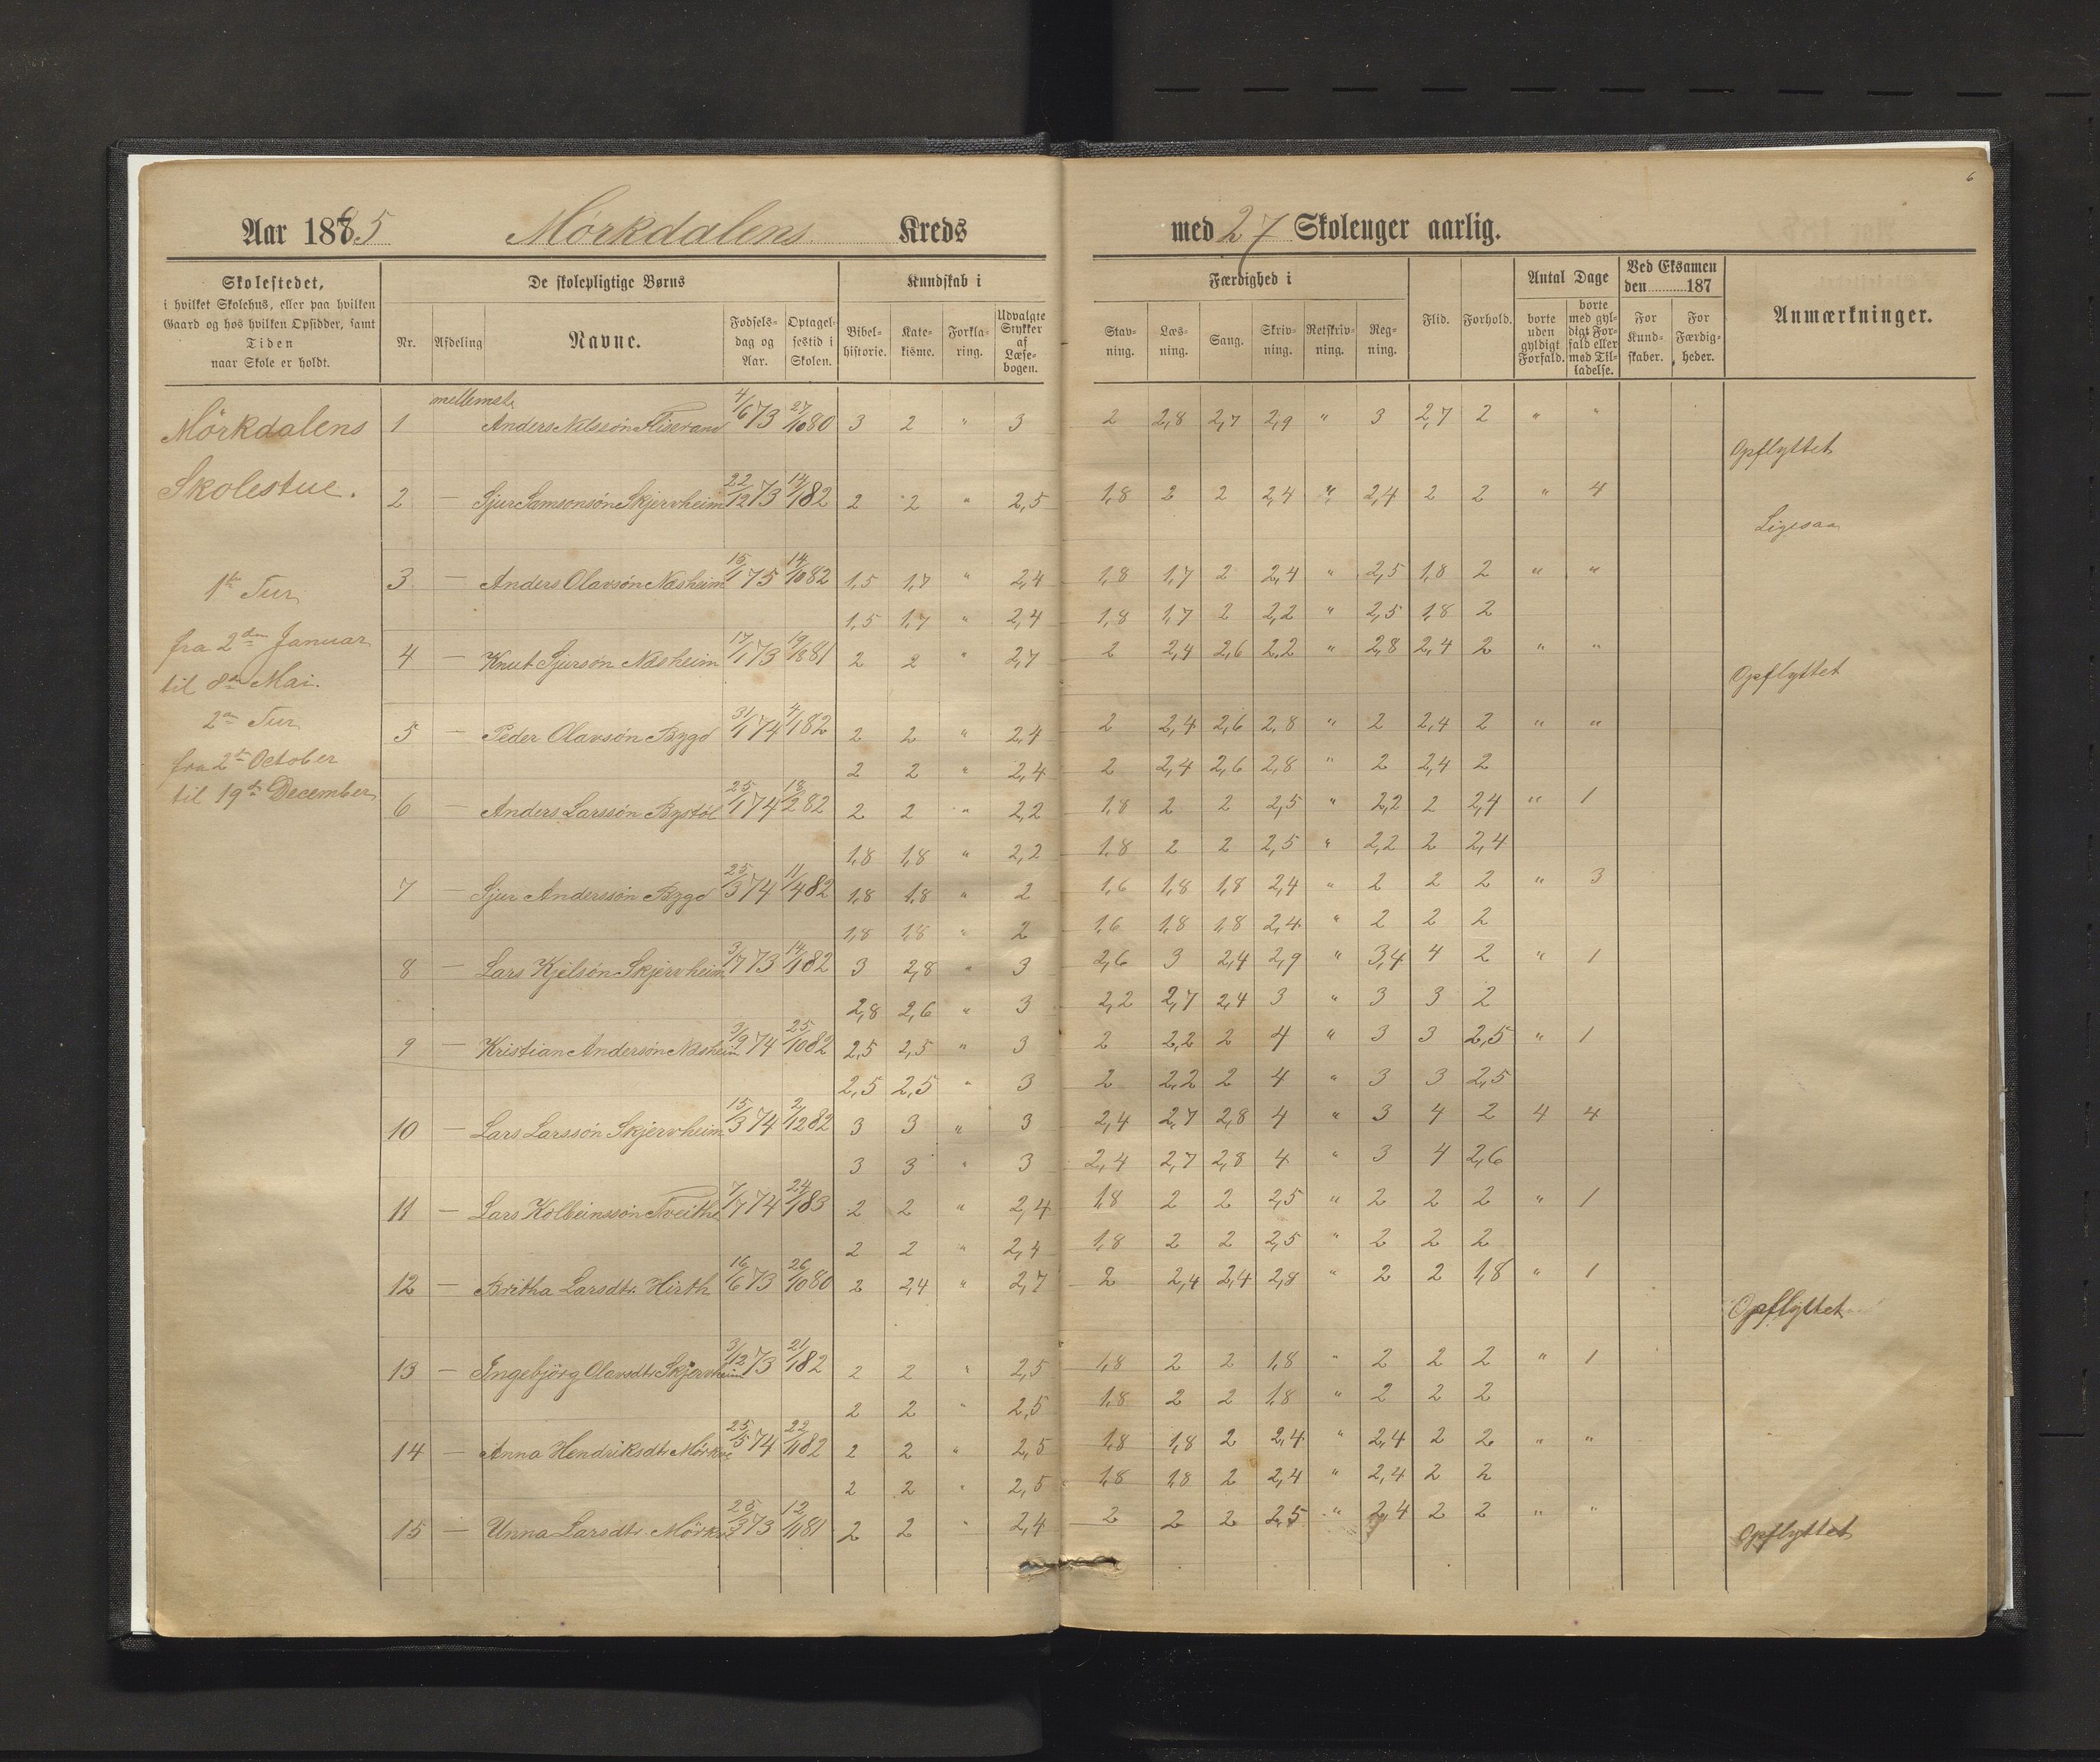 6
Aar 1885 Mörkdalens Kreds med 27 Skoleuger aarlig.
Skolestedet, i hvilket Skolehus, eller paa hvilken Gaard og hos hvilken Opsidder, samt Tiden naar Skole er holdt.
De skolepligtige Børns
Nr. Afdeling Navne. Fødsels-dag og Aar. Optagel-sestid i Skolen.
Kundskab i
Bibel-historie. Kate-kisme. Forkla-ring. Udvalgte Stykker af Læse-bogen.
Færdighed i
Stav-ning. Læs-ning. Sang. Skriv-ning. Retskriv-ning. Reg-ning.
Flid. Forhold.
Antal Dage
borte uden gyldigt Forfald. borte med gyl-digt For-fald eller med Til-ladelse.
Ved Eksamen den 187
For Kund-skaber. For Færdig-heder.
Anmærkninger.
Mörkdalens
Skolestue.
1ste Tur
fra 2den Januar
til 8de Mai.
2den Tur
fra 2det October
til 19de December
mellemste
1 Anders Nilssön 4/6 73 27/10 80 3 2 " 3 2 2,8 2,7 2,9 " 3 2,7 2 " "
Opflyttet
2 — Sjur Samsonsön Skjervheim 22/12 73 14/1 82 2 2 " 2,5 1,8 2 2 2,4 " 2,4 2 2 " 4
Ligesaa
3 — Anders Olavsön Næsheim 15/1 75 14/10 82 1,5 1,7 " 2,4 1,8 1,7 2 2,4 " 2,5 1,8 2 " "
1,5 1,7 " 2,4 1,8 1,7 2 2,2 " 2,5 1,8 2
4 — Knut Sjursön Næsheim 17/1 73 81 2 2 " 2,7 2 2,4 2,6 2,2 " 2,8 2,4 2 " "
Opflyttet
5 — Peder Olavsön Bygd 31/1 74 4/1 82 2 2 " 2,4 2 2,4 2,6 2,8 " 2 2,4 2 " "
2 2 " 2,4 2 2,4 2,6 2,8 " 2 2,4 2
6 — Anders Larssön Bystöl 25/1 74 18/2 82 2 2 " 2,2 1,8 2 2 2,5 " 2,2 2 2,4 " 1
1,8 1,8 " 2,2 1,8 2 2 2,5 " 2,2 2 2,4
7 — Sjur Anderssön Bygd 25/3 74 11/4 82 1,8 1,8 " 2 1,6 1,8 1,8 2,4 " 2 2 2 " 3
1,8 1,8 " 2 1,6 1,8 1,8 2,4 " 2 2 2
8 — Lars Kjelsön Skjervheim 3/7 73 14/1 82 3 2,8 " 3 2,6 3 2,4 2,9 " 3,4 4 2 " 1
2,8 2,6 " 3 2,2 2,7 2,4 3 " 3 3 2
9 — Kristian Andersön Næsheim 3/9 74 25/10 82 2,5 2,5 " 3 2 2,2 2 4 " 3 3 2,5 " 1
2,5 2,5 " 3 2 2,2 2 4 " 3 3 2,5
10 — Lars Larssön Skjervheim 15/3 74 2/12 82 3 3 " 3 2,4 2,7 2,8 4 " 3 4 2 4 4
3 3 " 3 2,4 2,7 2,8 4 " 3 4 2,6
11 — Lars Kolbeinssön Tveithe 7/7 74 24/1 83 2 2 " 2,4 1,8 2 2 2,5 " 2 2 2 " 1
2 2 " 2,4 1,8 2 2 2,5 " 2 2 2
12 — Britha Larsdtr. Hirth 16/6 73 26/10 80 2 2,4 " 2,7 2 2,4 2,4 2,8 " 2 2 1,8 " 1
Opflyttet
13 — Ingebjörg Olavsdtr Skjervheim 3/12 73 21/1 82 2 2 " 2,5 1,8 2 2 1,8 " 2 2 2 " 1
2 2 " 2,5 1,8 2 2 1,8 " 2 2 2
14 — Anna Hendriksdtr Mörkve 25/5 74 22/11 82 2 2 " 2,5 1,8 1,8 2 2,4 " 2,4 2 2 " "
2 2 " 2,5 1,8 1,8 2 2,4 " 2,4 2 2
15 — Unna Larsdtr. Mörkve 25/3 73 12/11 81 2 2 " 2,4 2 2 2 2,5 " 2,4 2 2 " "
Opflyttet